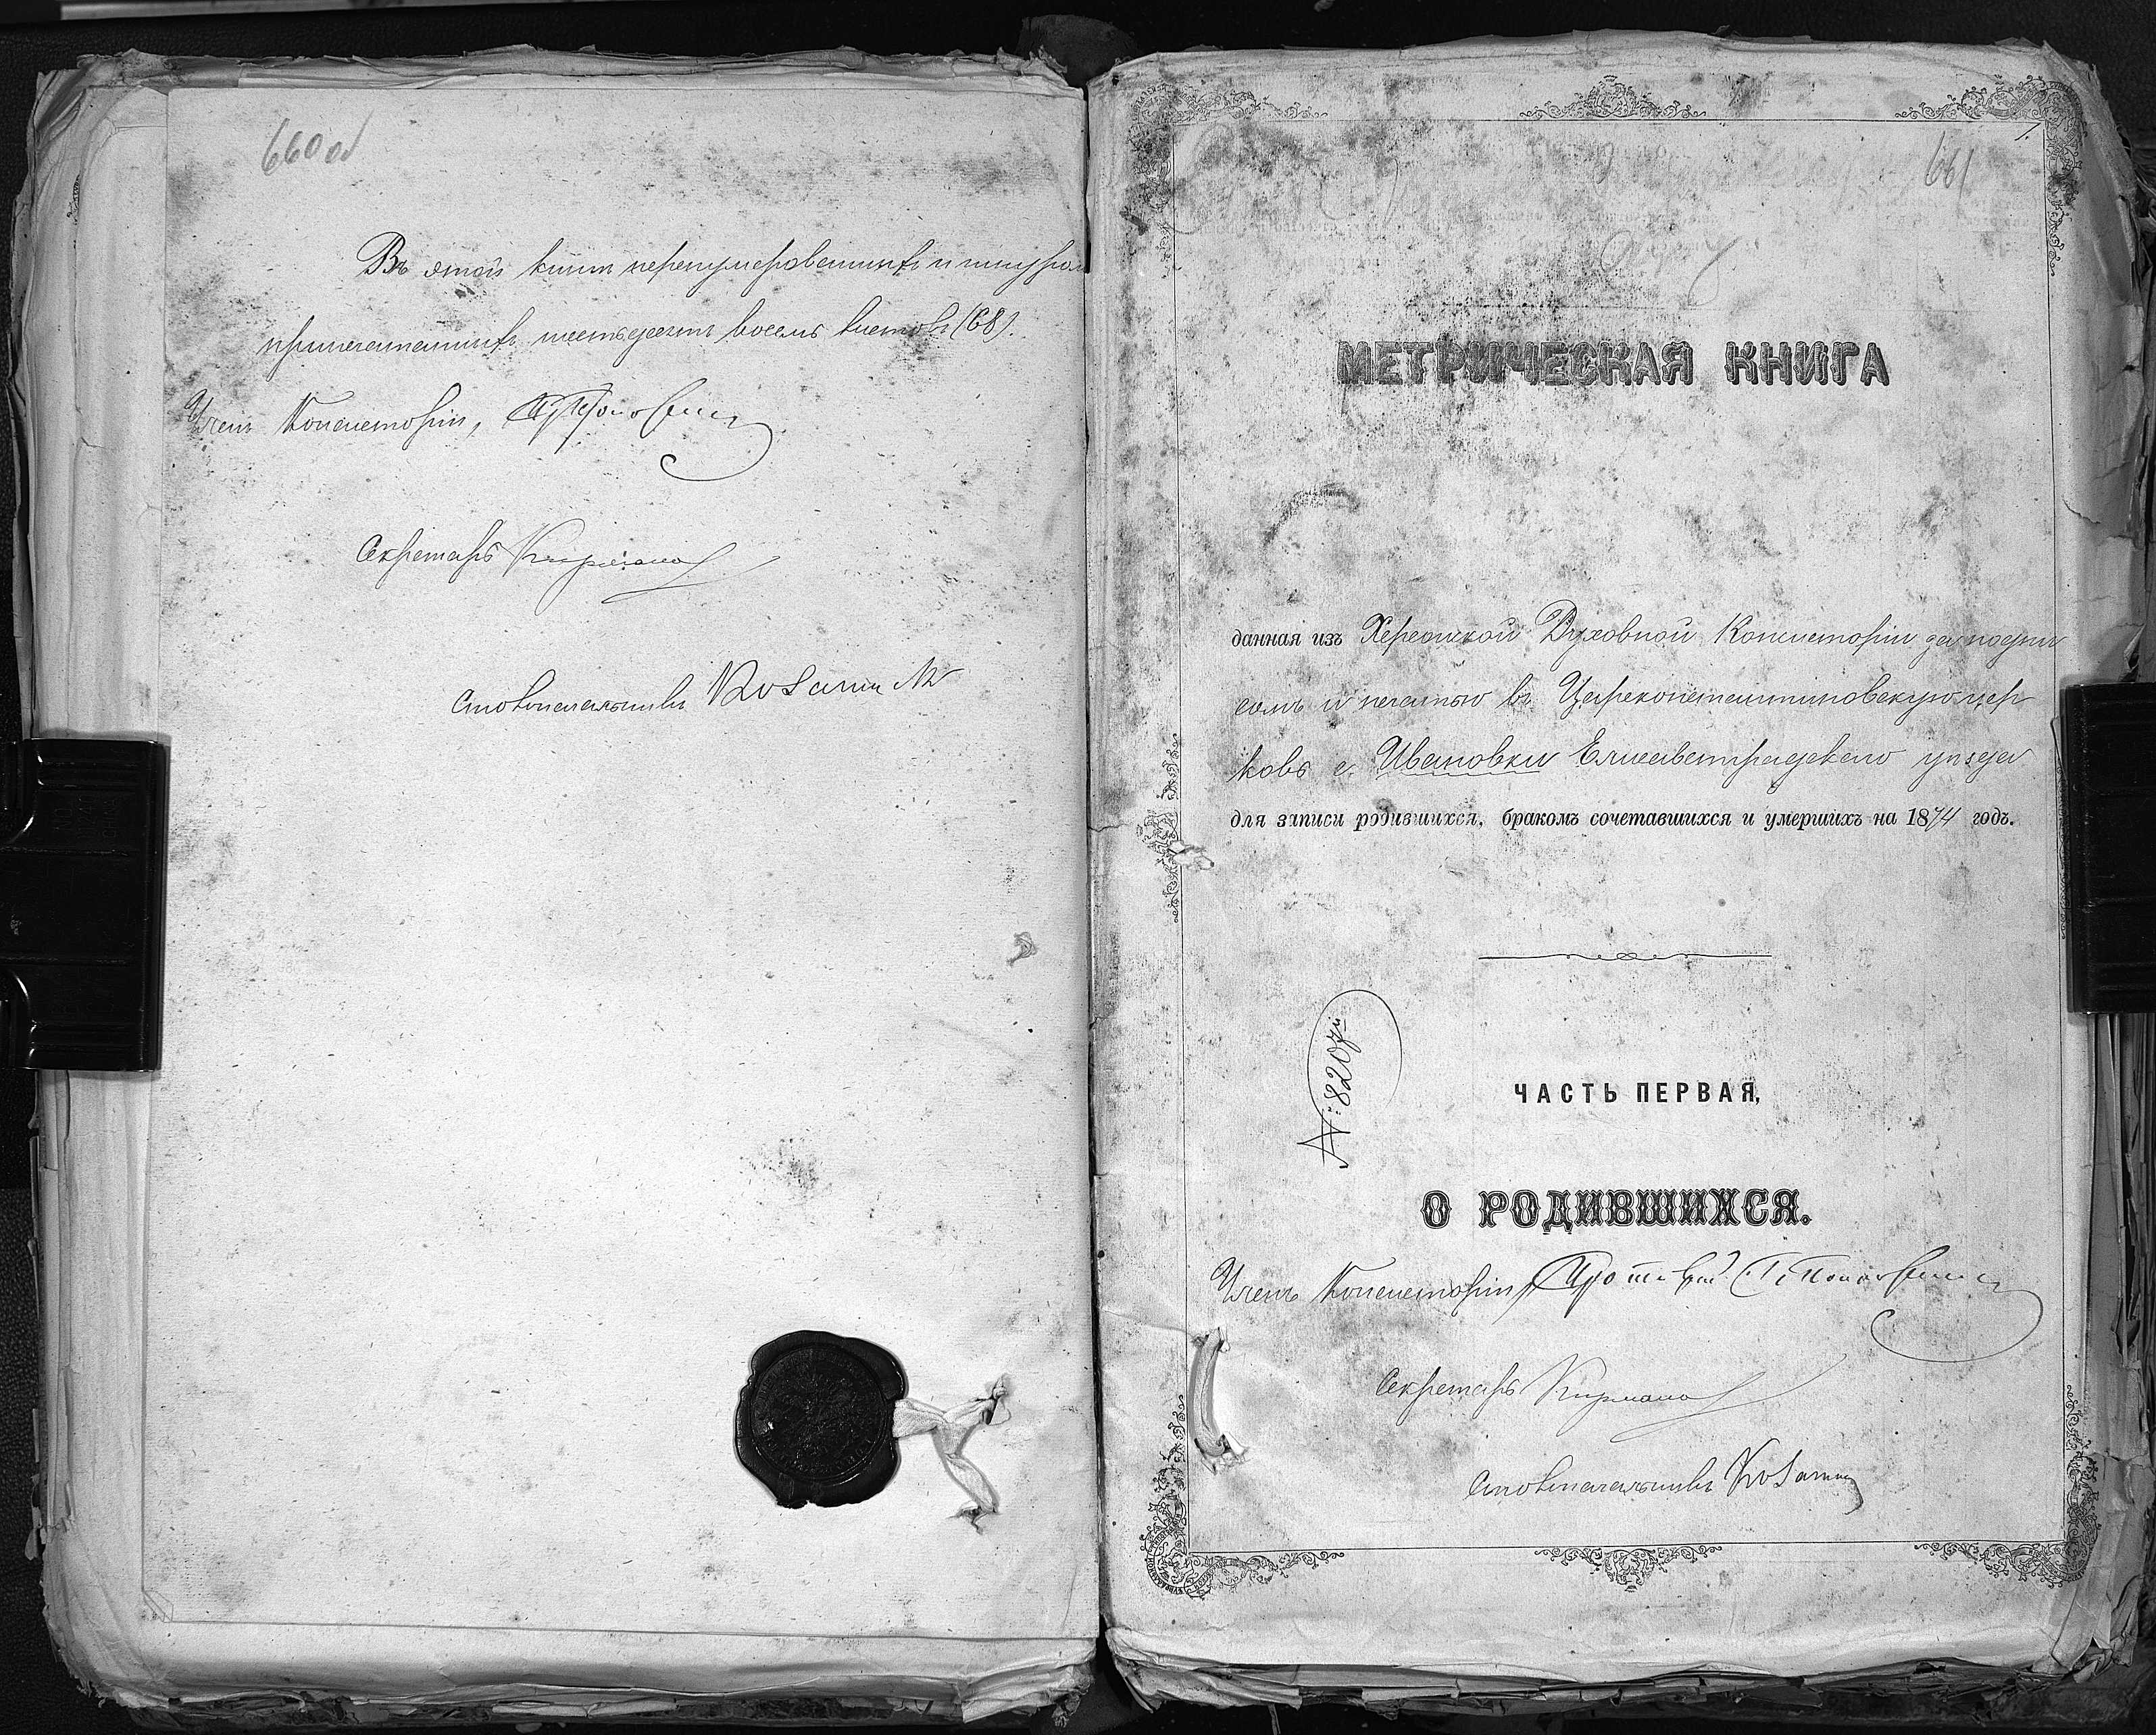 660 об
Въ этой книгѣ перенумерованныхъ и шнуро
припечатанныхъ шестьдесятъ восемь листовъ (68).
Членъ Консисторіи,
Секретарь
Столоначальникъ
1.
661
МЕТРИЧЕСКАЯ КНИГА
данная изъ Херсонской Духовной Консисторіи за подпи
сомъ и печатью въ Цареконстантиновскую цер
ковь с. Ивановки Елисаветградскаго уѣзда
для записи родившихся, бракомъ сочетавшихся и умершихъ на 1874 годъ.
№ 8207
ЧАСТЬ ПЕРВАЯ,
О РОДИВШИХСЯ.
Членъ Консисторіи,
Секретарь
Столоначальникъ